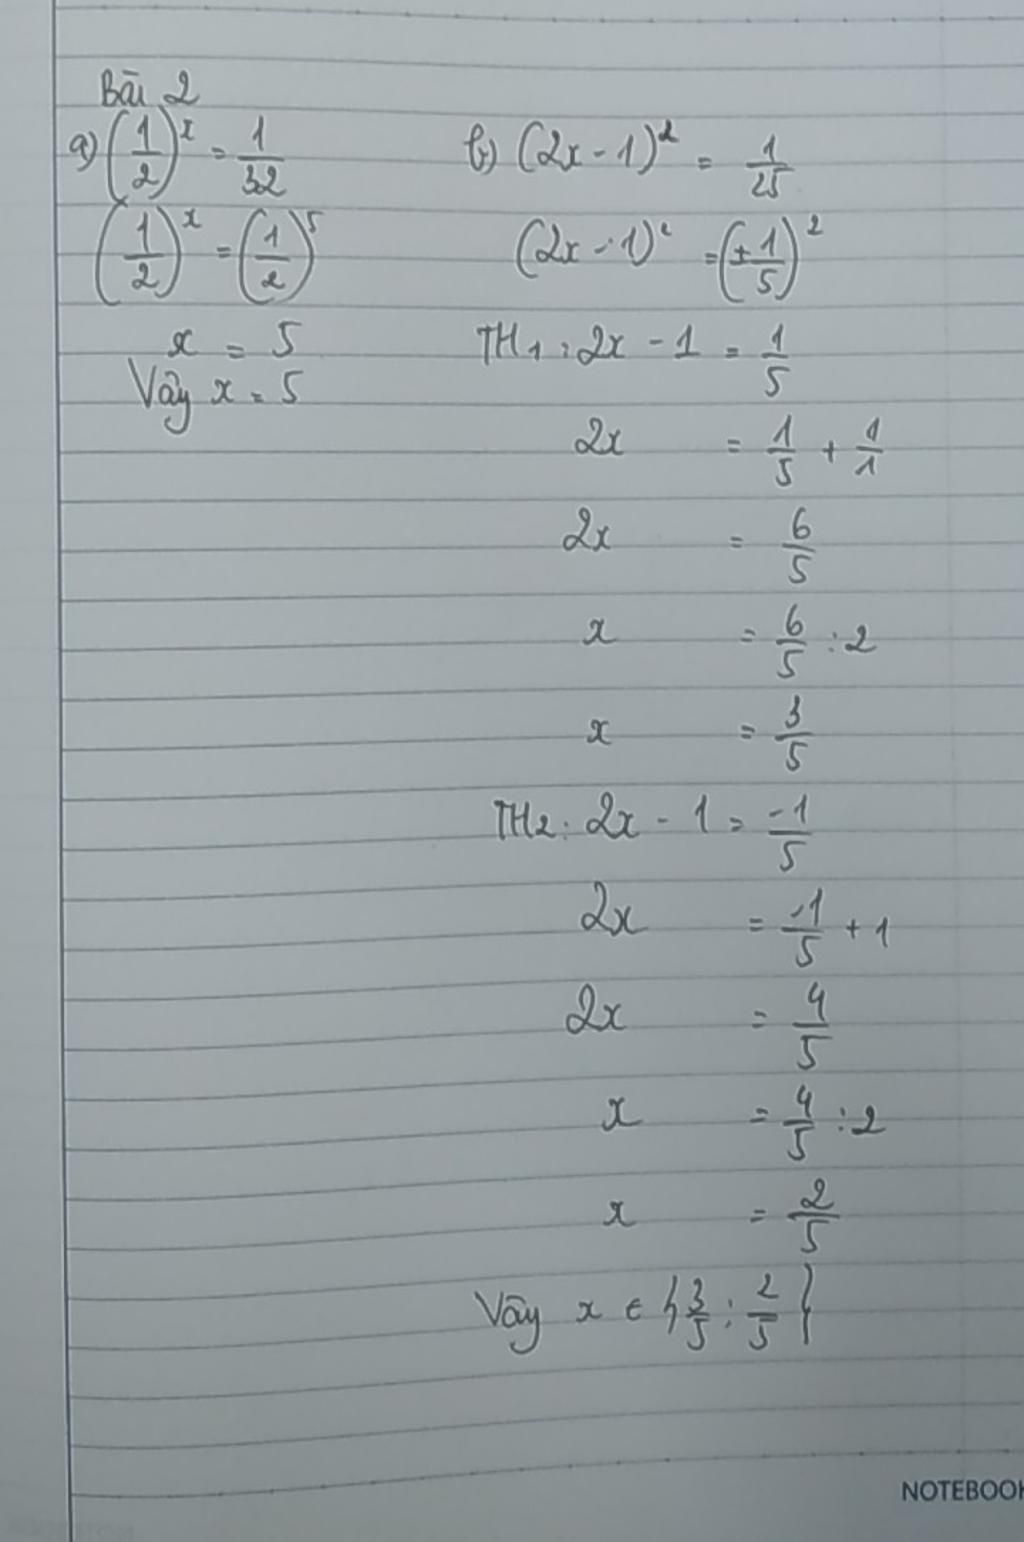 Bài 2
a) (1/2)^x = 1/32
(1/2)^x = (1/2)^5
x = 5
Vậy x = 5
b) (2x - 1)^2 = 1/25
(2x - 1)^2 = (±1/5)^2
TH1: 2x - 1 = 1/5
2x = 1/5 + 1/1
2x = 6/5
x = 6/5 : 2
x = 3/5
TH2: 2x - 1 = -1/5
2x = -1/5 + 1
2x = 4/5
x = 4/5 : 2
x = 2/5
Vậy x ∈ {3/5; 2/5}
NOTEBOOK